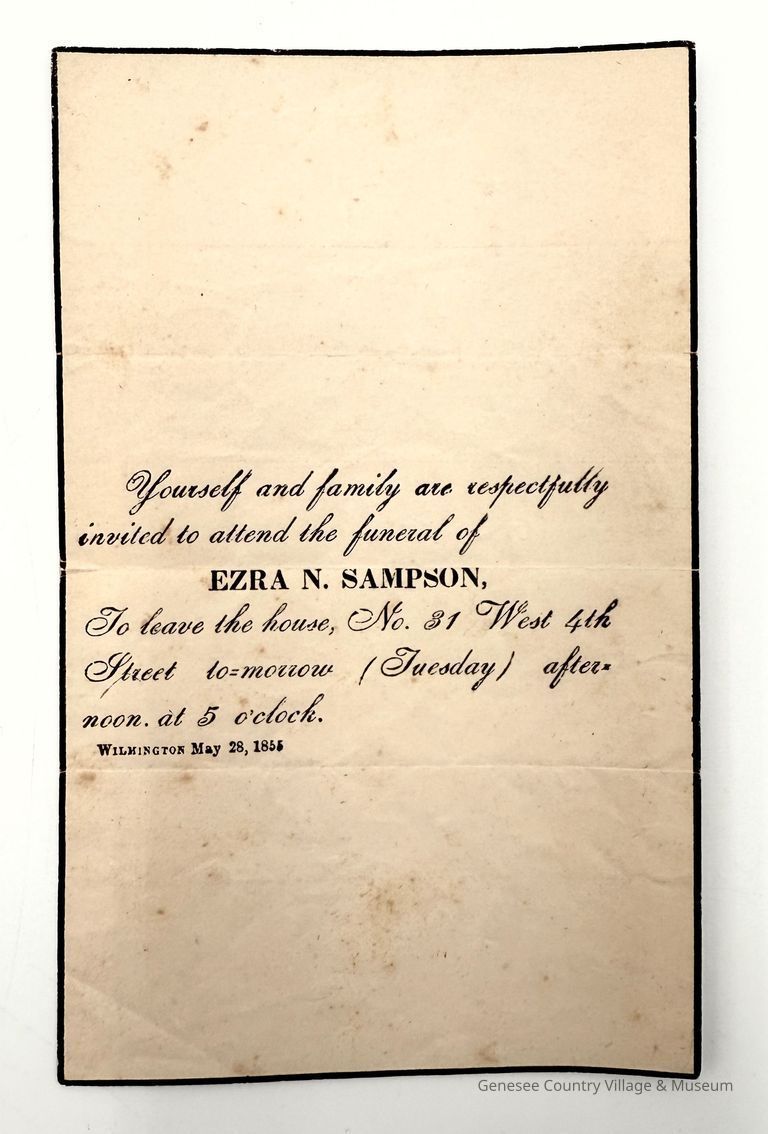 Yourself and family are respectfully
invited to attend the funeral of
EZRA N. SAMPSON,
To leave the house, No. 31 West 4th
Street to=morrow (Tuesday) after=
noon. at 5 o'clock.
WILMINGTON May 28, 1855
Genesee Country Village & Museum